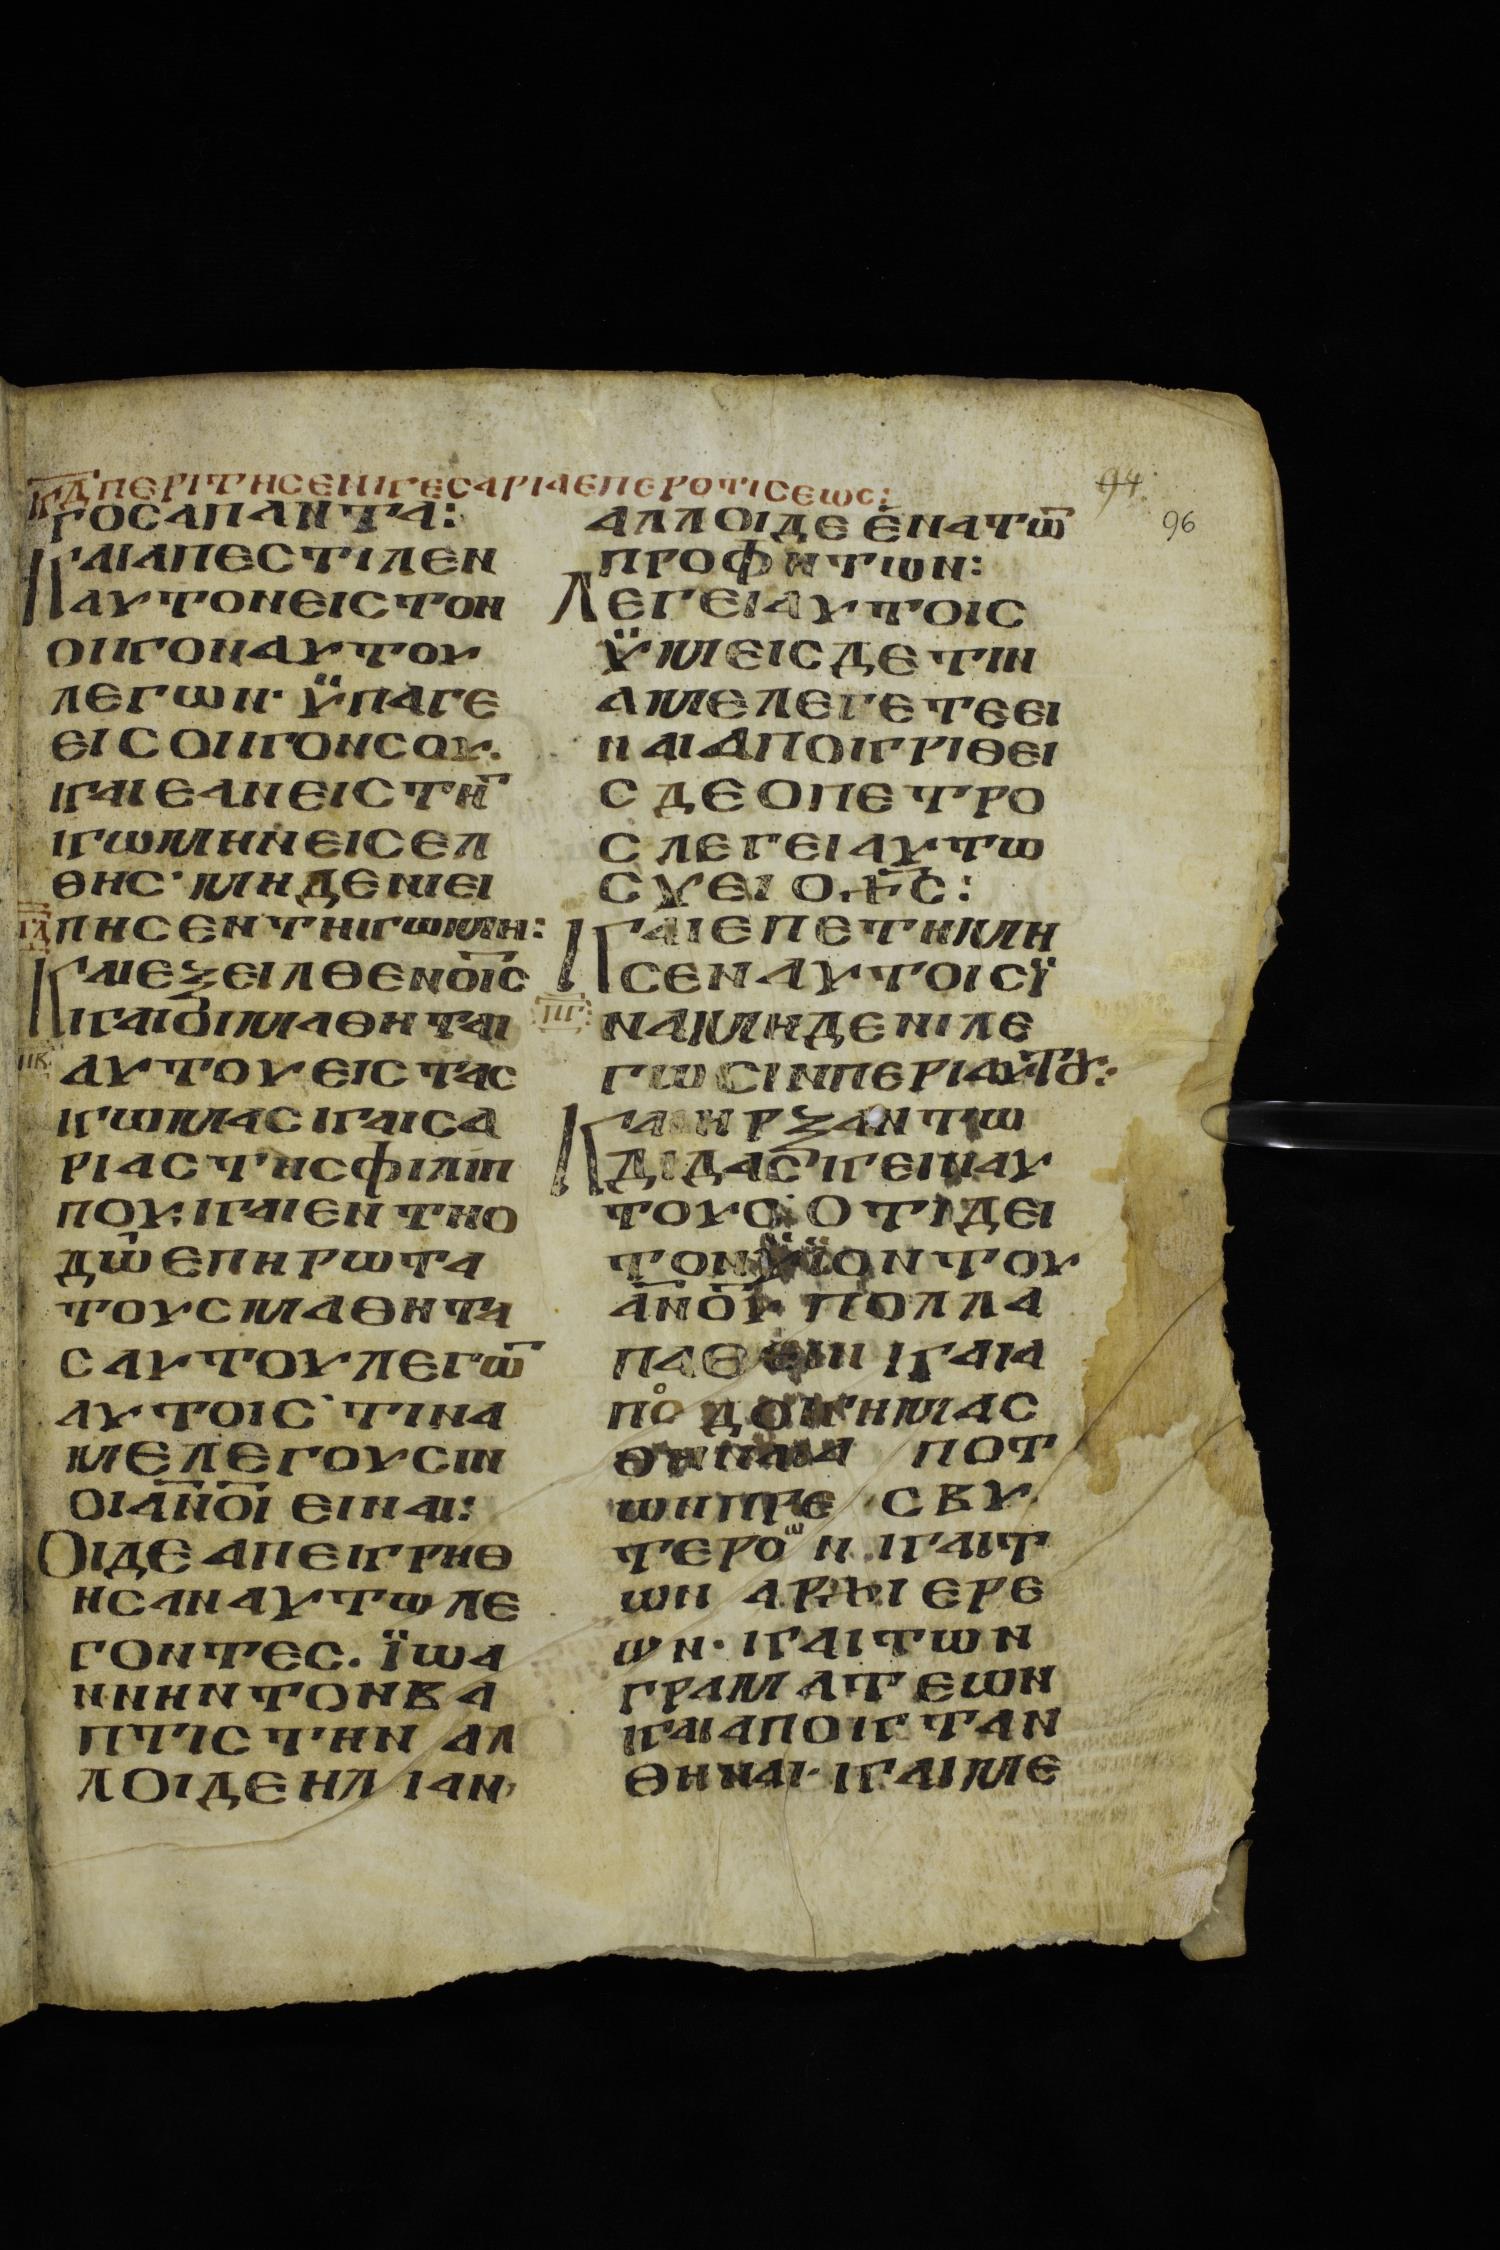 ΚΔ ΠΕΡΙΤΗСΕΝΚΕСΑΡΙΑΕΠΕΡΟΤΙСΕωС:
94
96
ΓΟСΑΠΑΝΤΑ:
ΚΑΙΑΠΕСΤΙΛΕΝ
ΑΥΤΟΝΕΙСΤΟΝ
ΟΙΚΟΝΑΥΤΟΥ
ΛΕΓωΝ· ΫΠΑΓΕ
ΕΙСΟΙΚΟΝСΟΥ.
ΚΑΙΕΑΝΕΙСΤΗ̅
ΚωΜΗΝΕΙСΕΛ
ΘΗС· ΜΗΔΕΝΙΕΙ
ΠΗСΕΝΤΗΚωΜΗ:
ΚΑΙΕΞΕΙΛΘΕΝΟΙ̅С
ΚΑΙΟΙΜΑΘΗΤΑΙ
ΑΥΤΟΥΕΙСΤΑС
ΚωΜΑСΚΑΙСΑ
ΡΙΑСΤΗСΦΙΛΙΠ
ΠΟΥ: ΚΑΙΕΝΤΗΟ
ΔωΕΠΗΡωΤΑ
ΤΟΥСΜΑΘΗΤΑ
СΑΥΤΟΥΛΕΓω̅
ΑΥΤΟΙС` ΤΙΝΑ
ΜΕΛΕΓΟΥСΙΝ
ΟΙΑ̅Ν̅Ο̅Ι̅ ΕΙΝΑΙ:
ΟΙΔΕΑΠΕΙΚΡΗΘ
ΗСΑΝΑΥΤωΛΕ
ΓΟΝΤΕС. ΪωΑ
ΝΝΗΝΤΟΝΒΑ
ΠΤΙСΤΗΝ ΑΛ
ΛΟΙΔΕΗΛΙΑΝ
ΑΛΛΟΙΔΕΕΝΑΤω̅
ΠΡΟΦΗΤωΝ:
ΛΕΓΕΙΑΥΤΟΙС
ΫΜΕΙСΔΕΤΙΝ
ΑΜΕΛΕΓΕΤΕΕΙ
ΝΑΙΑΠΟΙΚΡΙΘΕΙ
СΔΕΟΠΕΤΡΟ
СΛΕΓΕΙΑΥΤω
СΥΕΙΟΧ̅С̅:
ΚΑΙΕΠΕΤΗΜΗ
СΕΝΑΥΤΟΙСΪ
ΝΑΜΗΔΕΝΙΛΕ
ΓωСΙΝΠΕΡΙΑΥΤΟΥ:
ΚΑΙΗΡΞΑΝΤω
ΔΙΔΑСΚΕΙΝΑΥ
ΤΟΥС: ΟΤΙΔΕΙ
ΤΟΝΫΪΟΝΤΟΥ
Α̅Ν̅Ο̅Υ̅ ΠΟΛΛΑ
ΠΑΘΕΙΝ ΚΑΙΑ
ΠΟΔΟΚΗΜΑС
ΘΗΝΑΙΑ ΠΟΤ
ωΝΠΡΕ СΒΥ
ΤΕΡΟωΝ ΚΑΙΤ
ωΝ ΑΡΧΙΕΡΕ
ωΝ· ΚΑΙΤωΝ
ΓΡΑΜΑΤΕωΝ
ΚΑΙΑΠΟΙΚΤΑΝ
ΘΗΝΑΙ· ΚΑΙΜΕ